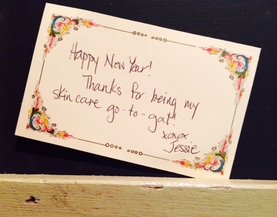 Happy New Year!
Thanks for being my
skin care go-to-gal!
xoxox
Jessie